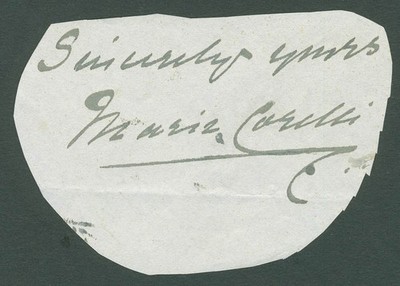 Sincerely yours
Marie Corelli